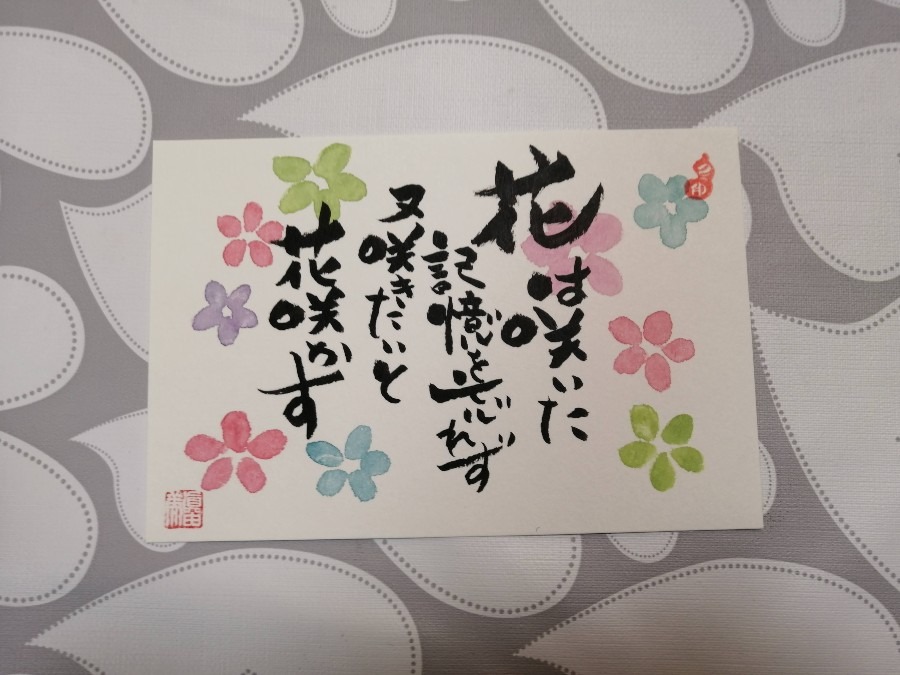 花は咲いた
記憶を忘れず
又咲きたいと
花咲かす